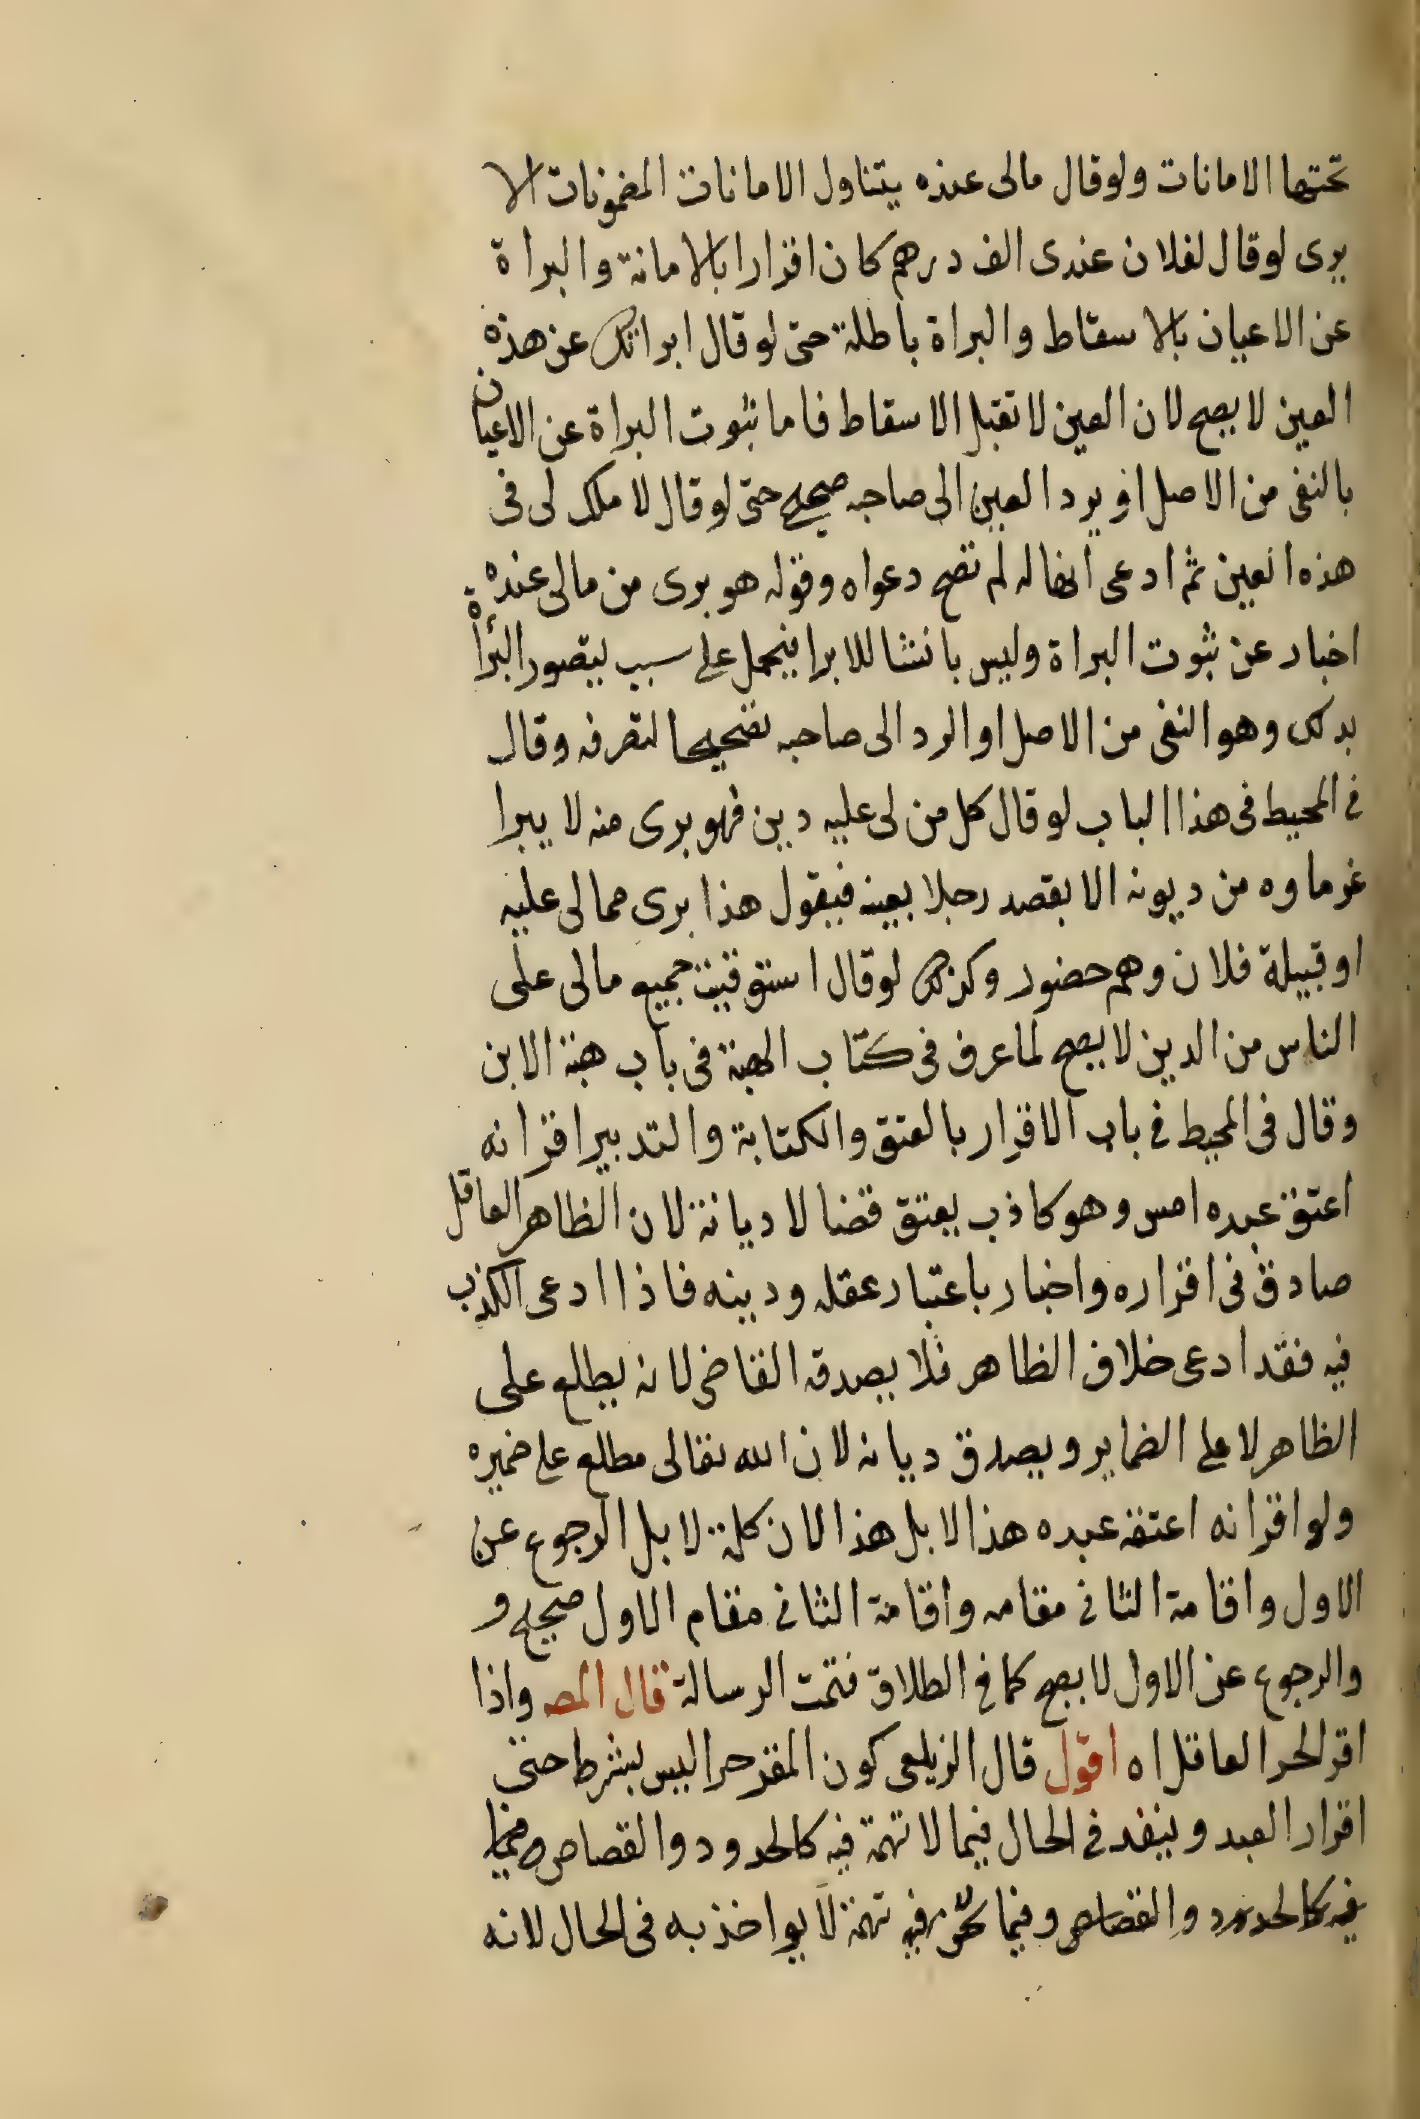 تحتها الامانات ولو قال مالى عنده يتناول الامانات المضمونات الا
يرى لو قال لفلان عندى الف درهم كان اقرارا بالامانة والبراة
عن الاعيان بالاسقاط والبراة باطلة حتى لو قال ابراتك عن هذه
العين لا يصح لان العين لا تقبل الاسقاط فاما ثبوت البراة عن الاعيان
بالنفى من الاصل او برد العين الى صاحبه صحيح حتى لو قال لا ملك لى فى
هذه العين ثم ادعى انها له لم تصح دعواه وقوله هو برى من مالى عنده
اخبار عن ثبوت البراة وليس بانشا للابرا فيحمل على سبب يتصور البراة
بذلك وهو النفى من الاصل او الرد الى صاحبه تصحيحا لتصرفه وقال
فى المحيط فى هذا الباب لو قال كل من لى عليه دين فهو برى منه لا يبرا
غرماوه من ديونه الا بقصد رجلا بعينه فيقول هذا برى مما لى عليه
او قبيلة فلان وهم حضور وكذلك لو قال استوفيت جميع مالى على
الناس من الدين لا يصح لما عرف فى كتاب الهبة فى باب هبة الابن
وقال فى المحيط فى باب الاقرار بالعتق والكتابة والتدبير اقر انه
اعتق عبده امس وهو كاذب يعتق قضا لا ديانة لان الظاهر العاقل
صادق فى اقراره واخبار باعتبار عقله ودينه فاذا ادعى الكذب
فيه فقد ادعى خلاف الظاهر فلا يصدقه القاضى لانه يطلع على
الظاهر لا على الضماير ويصدق ديانه لان الله تعالى مطلع على ضميره
ولو اقر انه اعتقه عبده هذا لا بل هذا لان كلمة لا بل الرجوع عن
الاول واقامة الثانى مقامه واقامة الثانى مقام الاول صحيح و
والرجوع عن الاول لا يصح كما فى الطلاق فتمت الرسالة قال المصـ واذا
اقر الحر العاقل اه اقول قال الزيلعى كون المقر حرا ليس بشرط حتى
اقرار العبد وينفد فى الحال فيما لا تهمة فيه كالحدود والقصاص وفيما
فيه كالحدود والقصاص وفيما فيه تهمة لا يواخذ به فى الحال لانه